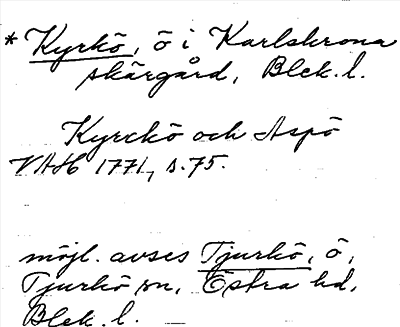 * Kyrkö, ö i Karlskrona
skärgård, Blek. l.
Kyrckö och Aspö
VAH 1771, s. 75.
möjl. avses Tjurkö, ö,
Tjurkö sn, Östra hd,
Blek. l.